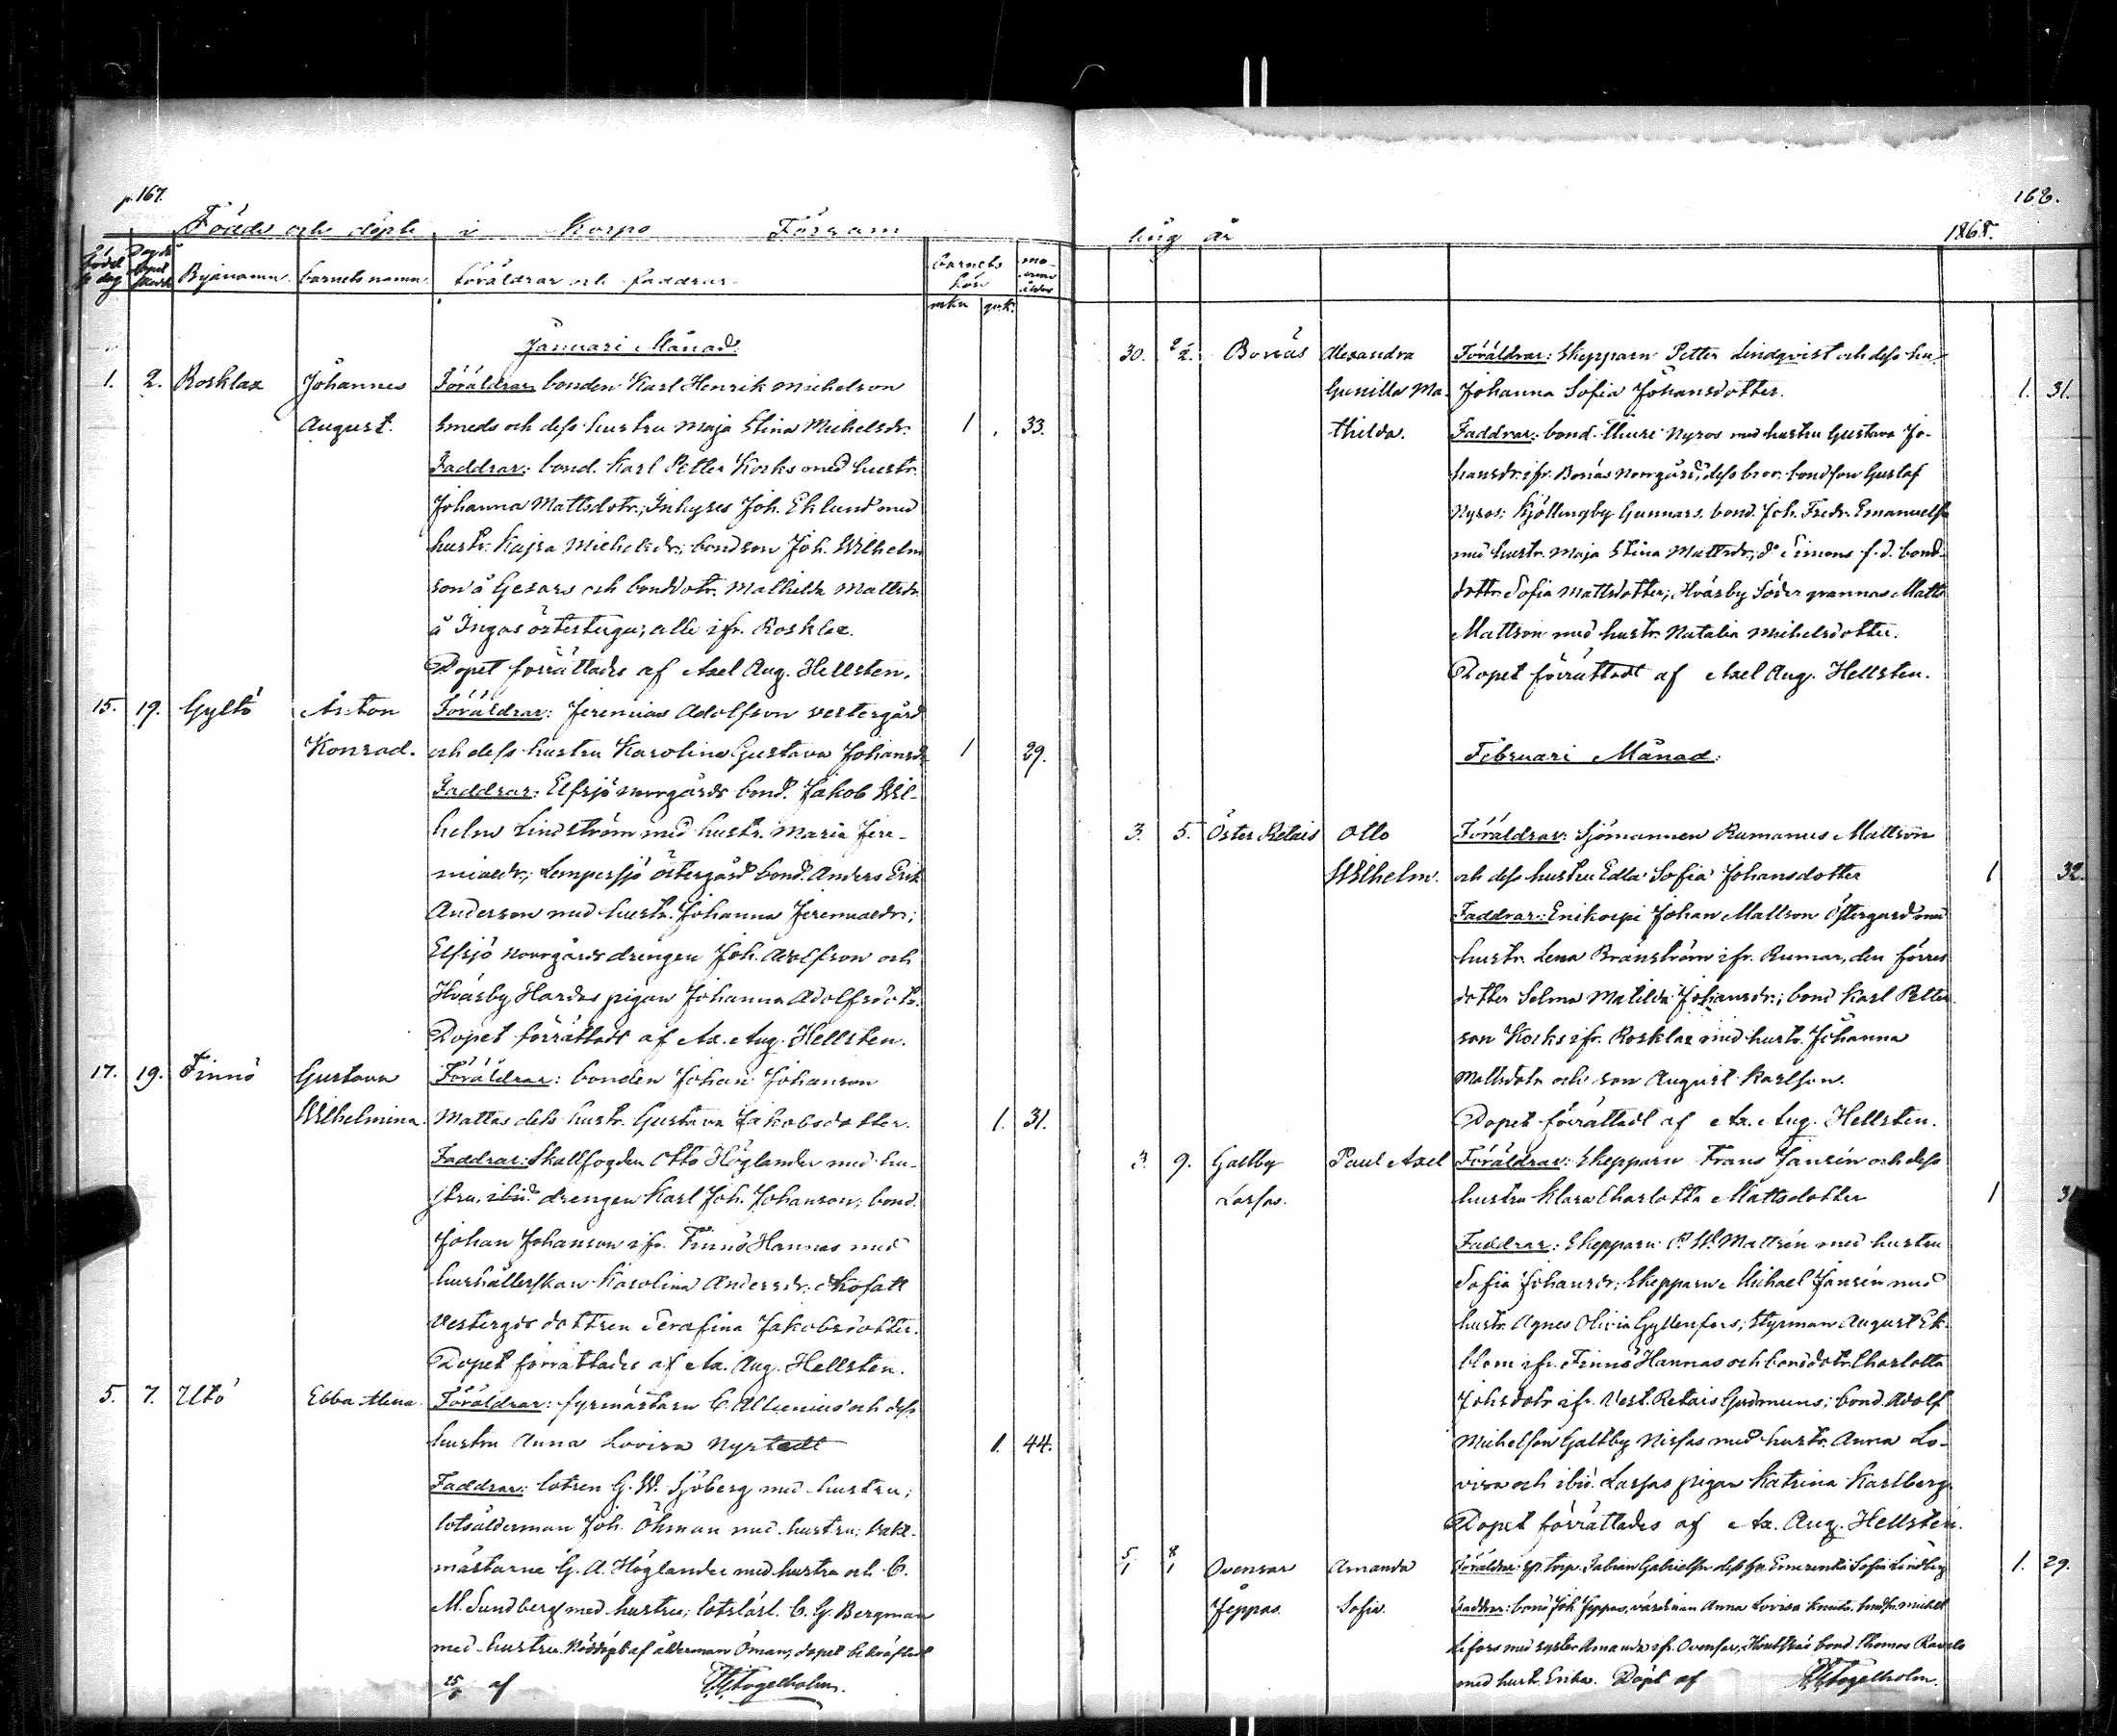 p. 167.
Födde och döpte i Korpo Försam
Födel
se dag
Dag då
döpet
skedt
Byänamn. barnets namn. föräldrar och faddrar.
barnets
kön
mo-
drens
ålder
mkn qvk:
Januari Månad:
1. 2. Rosklax Johannes Föräldrar bonden Karl Henrik Michelson
August. Smeds och dess hustru Maja Stina Michelsdr. 1 33.
Faddrar: bond. Karl Petter Korks med hustr.
Johanna Mattsdotr.; Inhyses Joh. Eklund med
hustr. Kajsa Michelsdr.; bondson Joh. Wilhelm
son å Gesars och bonddotr. Mathilda Mattsdr.
å Ingas österstuga; alle ifr. Rosklax.
Dopet förrättades af Axel Aug. Hellsten.
15. 19. Gyltö Anton Föräldrar: Jeremias Adolfson vestergård
Konrad. och dess hustru Karolina Gustava Johansdr. 1 29.
Faddrar: Elfsjö norrgårds bond. Jakob Wil-
helm Lindström med hustr. Maria Jere-
miaedr.; Lempersjö östergård bond. Anders Erik
Anderson med hustr. Johanna Jeremiaedr.;
Elfsjö Norrgårds drengen Joh. Adolfson och
Hväsby Hardas pigan Johanna Adolfsdotr.
Dopet förrättadt af Ax. Aug. Hellsten.
17. 19. Finnö Gustava Föräldrar: bonden Johan Johanson
Wilhelmina. Mattas dess hustr. Gustava Jakobsdotter. 1. 31.
Faddrar: Skallfogden Otto Höglander med hu-
stru, ibid. drengen Karl Joh. Johanson; bond.
Johan Johanson ifr. Finnö Hannas med
hushållerskan Karolina Andersdr.;
Vestergds dottren Serafina Jakobsdotter.
Dopet förrättades af Ax. Aug. Hellsten.
5. 7. Utö Ebba Alina. Föräldrar: fyrmästarn C. Allenius och dess
hustru Anna Lovisa Nystedt 1. 44.
Faddrar: lotsen G. W. Sjöberg med hustru;
lotsålderman Joh. Öhman med hustru; vakt-
mästarne G. A. Höglander med hustru och C.
M. Sundberg med hustru; lotslärl. C. G. Bergman
med hustru. Nöddöpt af ålderman Öman; dopet bekräftadt
af Fogelholm.
168.
ling år 1868.
30. 2/2. Bonäs Alexandra Föräldrar: Skepparn Petter Lindqvist och dess hu.
Gunilla Ma- Johanna Sofia Johansdotter. 1. 31.
thilda. Faddrar: bond. Thure Nyros med hustru Gustava Jo-
hansdr. ifr. Bonäs Norrgård, dess bror bondson Gustaf
Nyros; Kjöllingby Gunnars bond. Joh. Fredr. Emanuelss.
med hustr. Maja Stina Mattsdr.; do Simons f.d. bond-
dottr. Sofia Mattsdotter; Hväsby Södergrannas Matts
Mattson med hustr. Natalia Michelsdotter.
Dopet förrättadt af Axel Aug. Hellsten.
Februari Månad:
3. 5. Öster Retais Otto Föräldrar: Sjömannen Rumanus Mattson
Wilhelm. och dess hustru Edla Sofia Johansdotter 1 32.
Faddrar: Johan Mattson Östergård med
hustr. Lena Bränström ifr. Rumar, den förres
dotter Selma Matilda Johansdr.; bond Karl Petter-
son Korks ifr. Rosklax med hustr. Johanna
Mattsdotr och son August Karlson.
Dopet förrättadt af Ax. Aug. Hellsten.
3. 9. Galtby Paul Axel Föräldrar: Skepparn Frans Jansén och dess
Larsas. hustru Klara Charlotta Mattsdotter 1 31
Faddrar: Skepparn P. W. Mattsén med hustru
Sofia Johansdr.; Skepparn Michael Jansén med
hustr. Agnes Olivia Gyllenfors; Styrman August Ek-
blom ifr. Finnö Hannas och bonddotr. Charlotta
Johsdotr ifr. Vest. Retais Gudmuns; bond. Adolf
Michelson Galtby Nissas med hustr. Anna Lo-
visa och ibid. Larsas pigan Katrina Karlberg.
Dopet förrättades af Ax. Aug. Hellstén.
5/1 8/1 Ovensar Amanda Föräldrar: Fabian Gabrielsn dess Emerentia Sofia Lindberg 1. 29.
Jeppas. Sofia. Faddrar: bond Joh. Jeppas, värdinnan Anna Lovisa
med syster Amanda ifr. Ovensar, bond. Thomas
med hust. Erika. Döpt af Fogelholm.